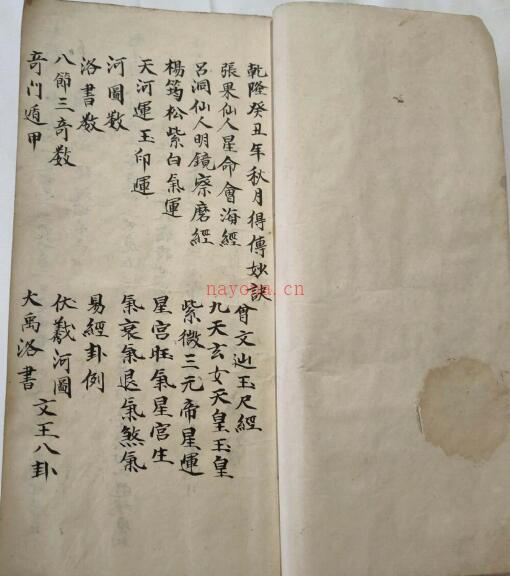 乾隆癸丑年秋月得傳妙訣
張果仙人星命會海經
呂洞仙人明鏡察磨經
楊筠松紫白氣運
天河運玉印運
河圖数
洛書数
八節三奇数
奇门遁甲
曾文辿玉尺經
九天玄女天皇玉皇
紫微三元帝星運
星宫旺氣星宫生
氣衰氣退氣煞氣
易經卦例
伏羲河圖
文王八卦
大禹洛書
nayona.cn